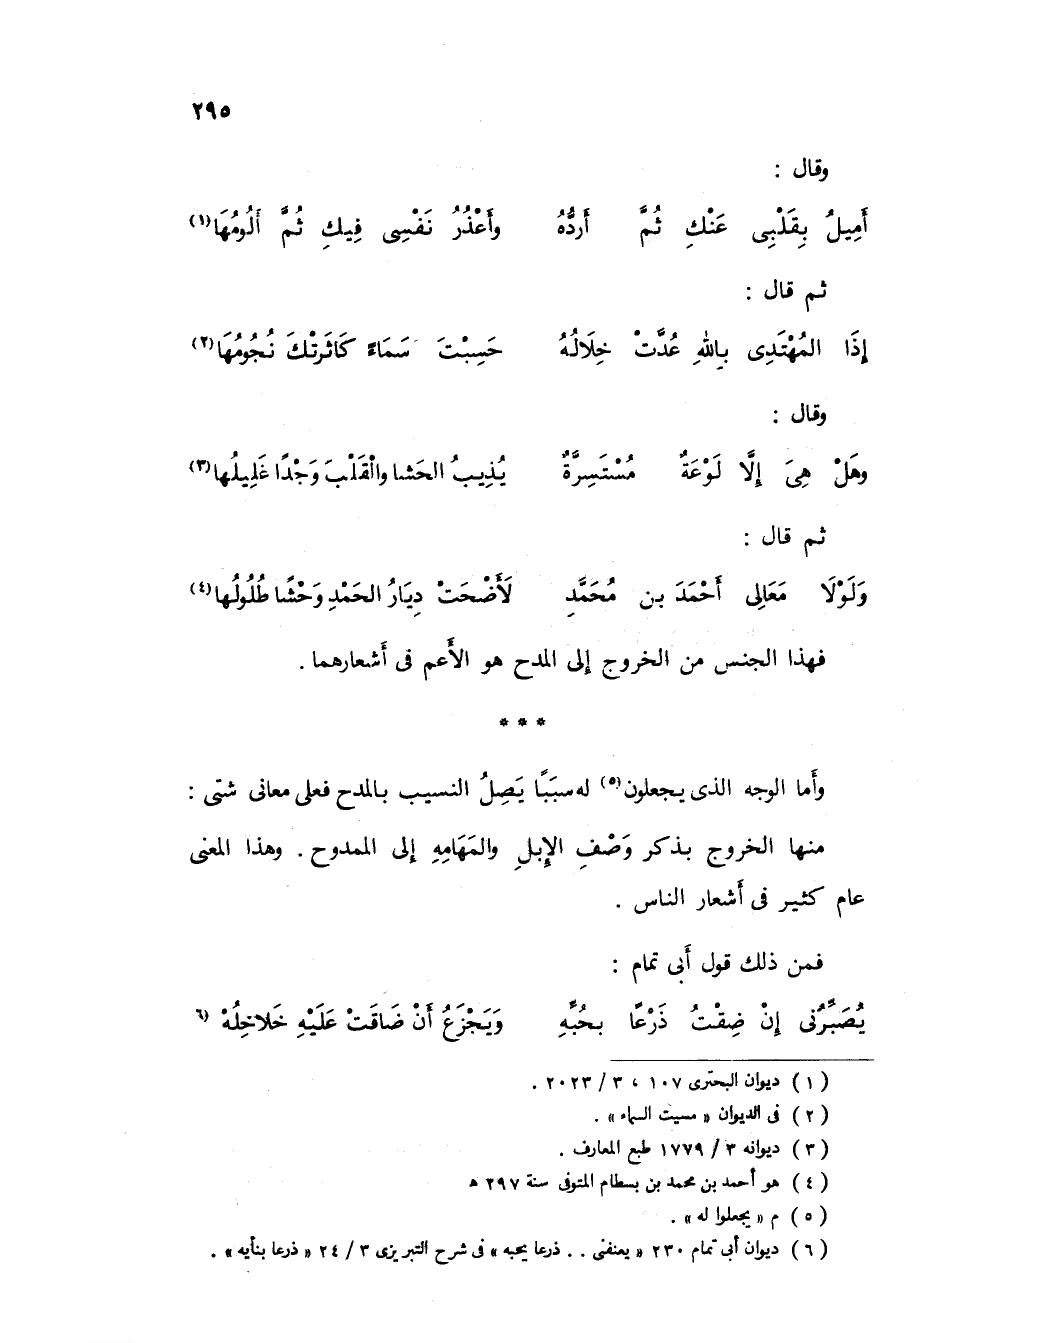 ٢٩٥
وقال :
أَمِيلُ بِقَلْبِى عَنْكِ ثُمَّ أَردُّهُ وأَعْذُرُ نَفْسِى فِيكِ ثُمَّ أَلُومُهَا(١)
ثم قال :
إِذَا المُهْتَدِى بِاللهِ عُدَّتْ خِلَالُهُ حَسِبْتَ سَمَاءً كَاثَرتْكَ نُجُومُهَا(٢)
وقال :
وهَلْ هِىَ إِلَّا لَوْعَةٌ مُسْتَسِرَّةٌ يُذِيبُ الحَشا والْقَلْبَ وَجْدًا غَلِيلُها(٣)
ثم قال :
وَلَوْلَا مَعَالِى أَحْمَدَ بن مُحَمَّدِ لَأَضْحَتْ دِيَارُ الحَمْدِ وَحْشًا طُلُولُها(٤)
فهذا الجنس من الخروج إلى المدح هو الأَعم فى أَشعارهما .
* * *
وأَما الوجه الذى يجعلون(٥) له سبَبًا يَصِلُ النسيب بالمدح فعلى معانى شتى :
منها الخروج بذكر وَصْفِ الإِبلِ والمَهَامِهِ إلى الممدوح . وهذا المعنى
عام كثير فى أَشعار الناس .
فمن ذلك قول أَبى تمام :
يُصَبِّرُنى إِنْ ضِقْتُ ذَرْعًا بحُبِّهِ وَيَجْزَعُ أَنْ ضَاقَتْ عَلَيْهِ خَلاخِلُهْ (٦
(١) ديوان البحترى ١٠٧ ، ٣ / ٢٠٢٣ .
(٢) فى الديوان « مسيت السماء » .
(٣) ديوانه ٣ / ١٧٧٩ طبع المعارف .
(٤) هو أحمد بن محمد بن بسطام المتوفى سنة ٢٩٧ ه
(٥) م « يجعلوا له » .
(٦) ديوان أبى تمام ٢٣٠ « يعنفنى . . ذرعا بحبه » فى شرح التبريزى ٣ / ٢٤ « ذرعا بنأيه » .